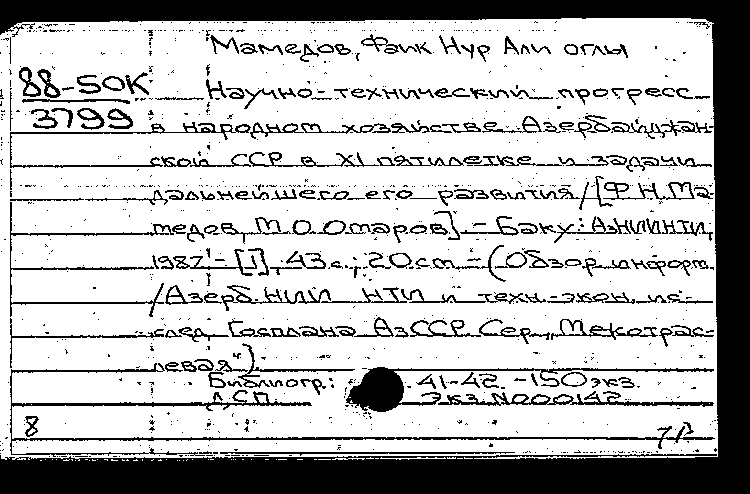 Мамедов, Фаик Нур Али оглы
88-50К
3799
Научно-технический прогресс
в народном хозяйстве Азербайджан-
ской ССР в XI пятилетке и задачи
дальнейшего его развития/[Ф.Н.Ма-
медов, М.О.Омаров]. - Баку: АзНИИНТИ,
1987. - [1], 43 с.; 20 см. - (Обзор. информ.
/Азерб. НИИ НТИ и техн.-экон. ис-
след. Госплана АзССР. Сер. „Межотрас-
левая").
Библиогр.: с. 41-42. - 150 экз.
ДСП. Экз. N000142.
8